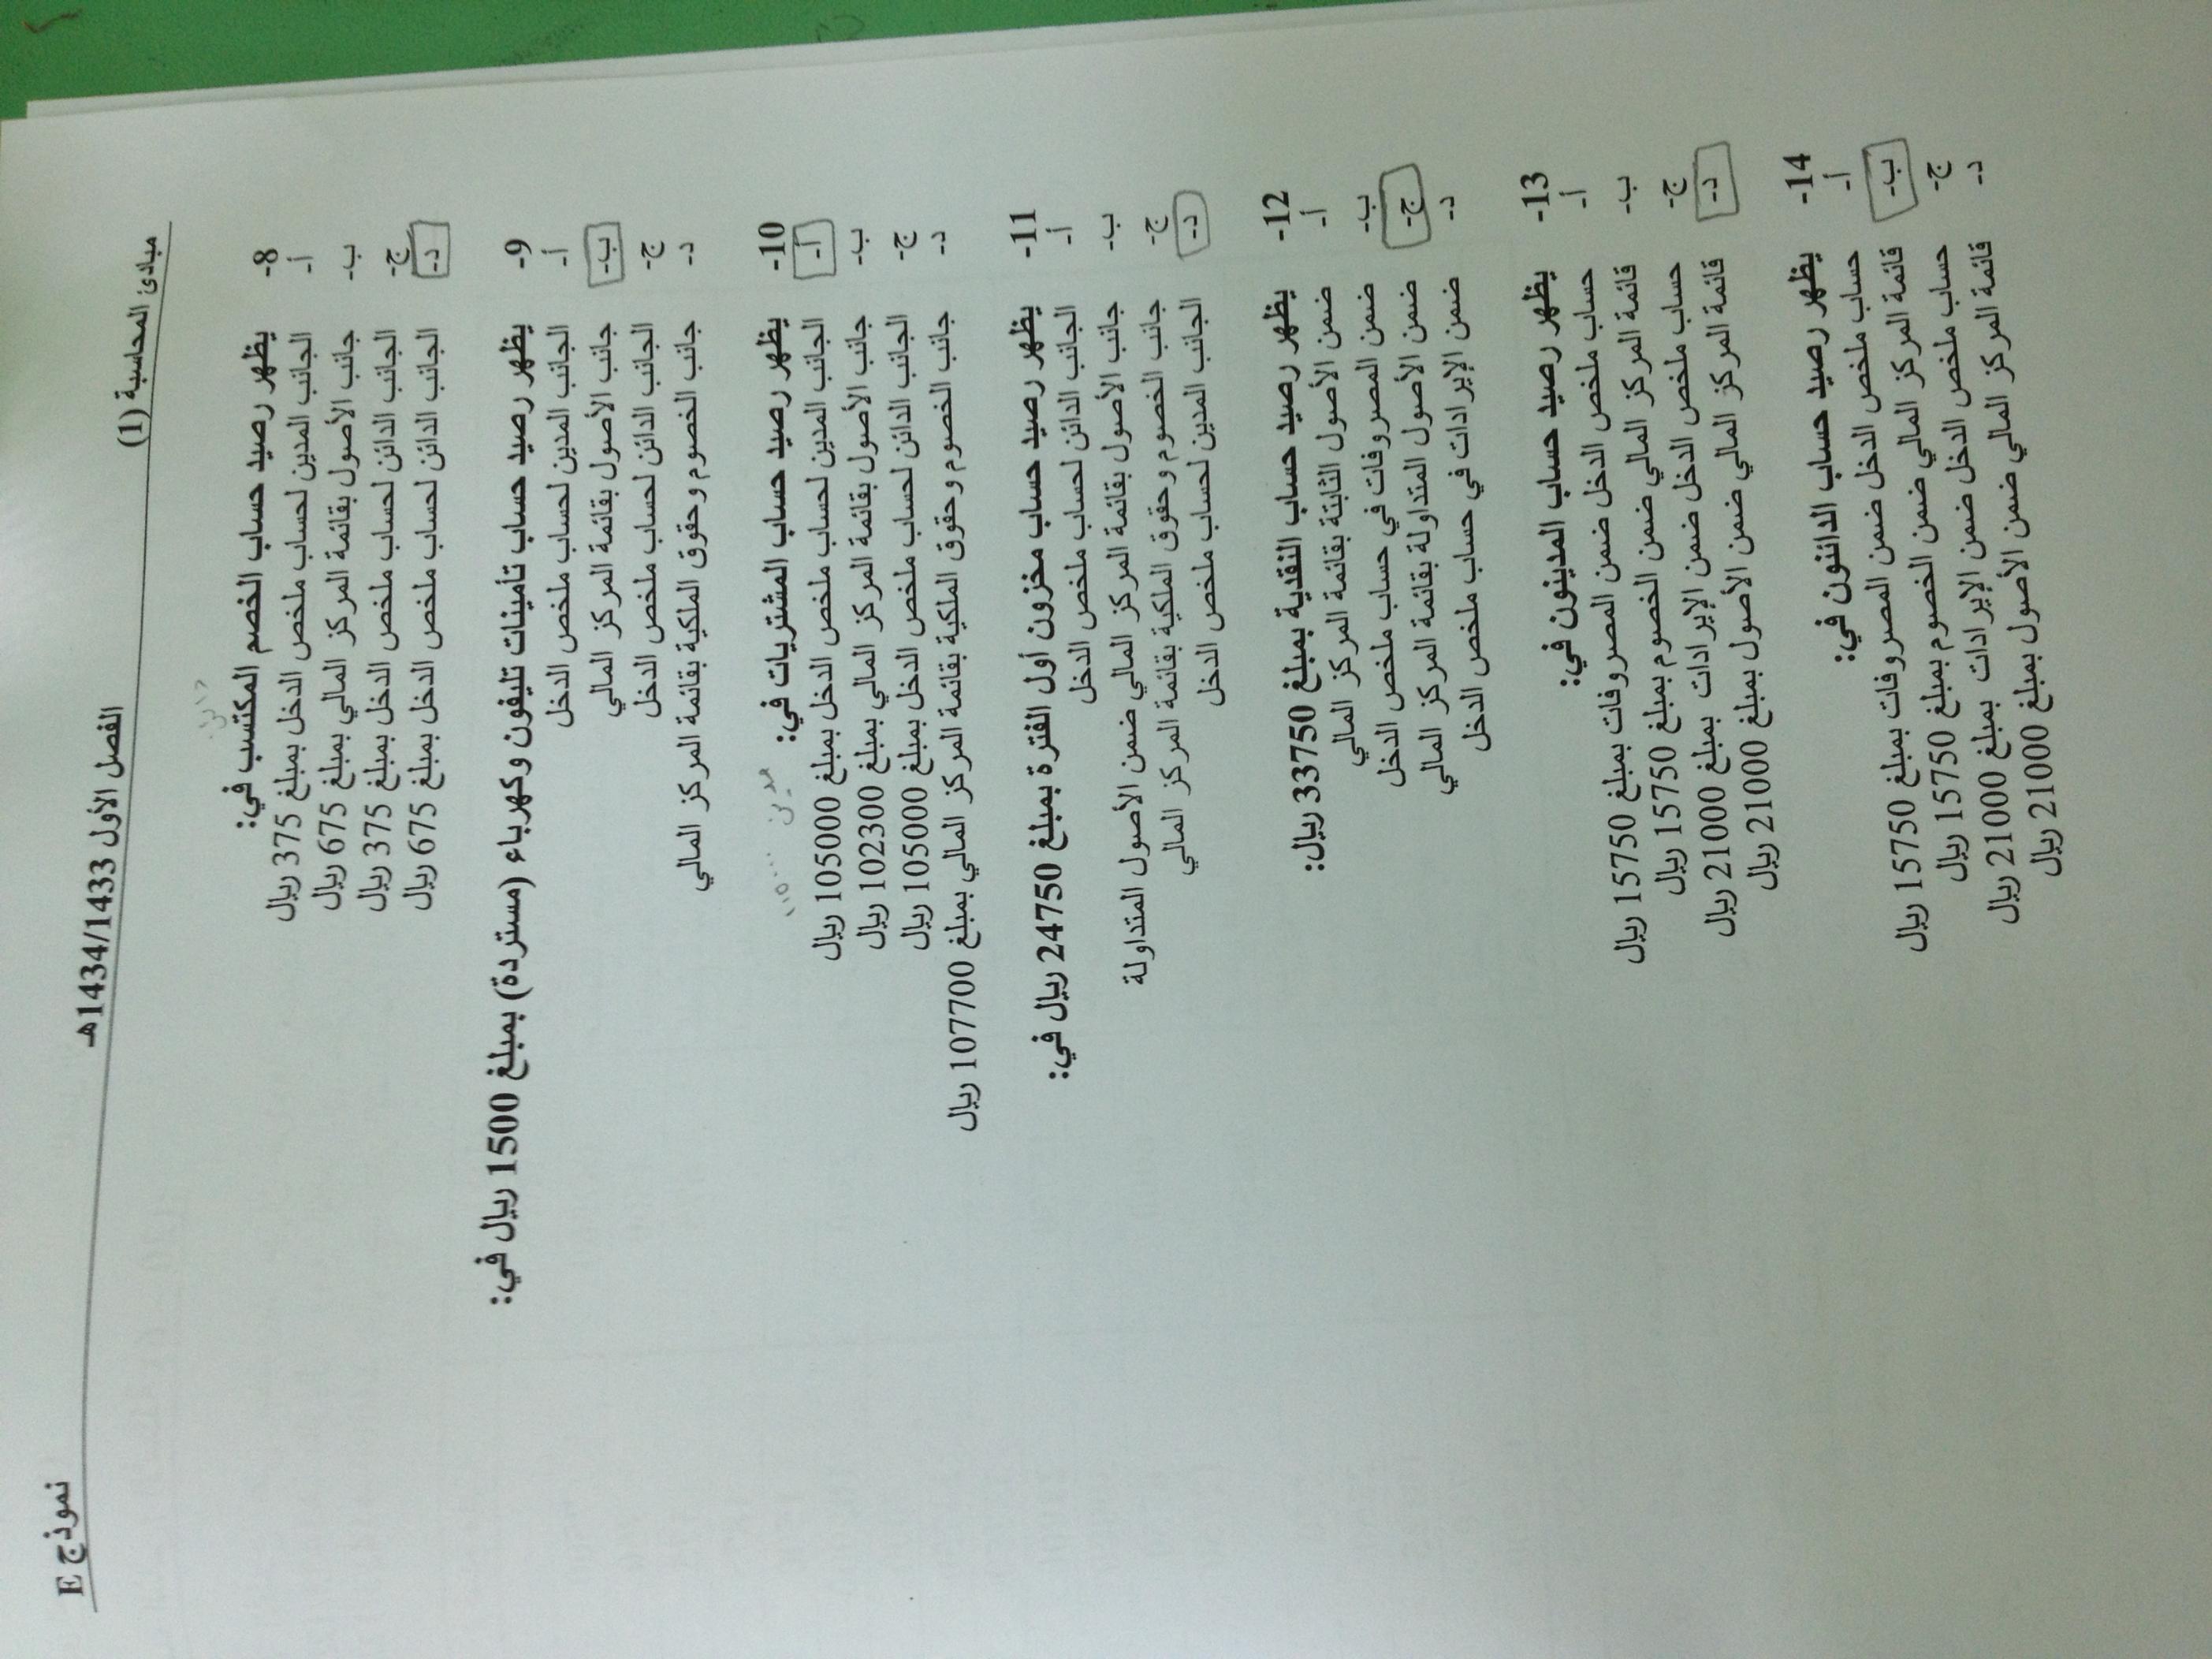 مبادئ المحاسبة (1) الفصل الأول 1434/1433هـ نموذج E
8- يظهر رصيد حساب الخصم المكتسب في:
أ- الجانب المدين لحساب ملخص الدخل بمبلغ 375 ريال
ب- جانب الأصول بقائمة المركز المالي بمبلغ 675 ريال
ج- الجانب الدائن لحساب ملخص الدخل بمبلغ 375 ريال
د- الجانب الدائن لحساب ملخص الدخل بمبلغ 675 ريال
9- يظهر رصيد حساب تأمينات تليفون وكهرباء (مستردة) بمبلغ 1500 ريال في:
أ- الجانب المدين لحساب ملخص الدخل
ب- جانب الأصول بقائمة المركز المالي
ج- الجانب الدائن لحساب ملخص الدخل
د- جانب الخصوم وحقوق الملكية بقائمة المركز المالي
10- يظهر رصيد حساب المشتريات في:
أ- الجانب المدين لحساب ملخص الدخل بمبلغ 105000 ريال
ب- جانب الأصول بقائمة المركز المالي بمبلغ 102300 ريال
ج- الجانب الدائن لحساب ملخص الدخل بمبلغ 105000 ريال
د- جانب الخصوم وحقوق الملكية بقائمة المركز المالي بمبلغ 107700 ريال
11- يظهر رصيد حساب مخزون أول الفترة بمبلغ 24750 ريال في:
أ- الجانب الدائن لحساب ملخص الدخل
ب- جانب الأصول بقائمة المركز المالي ضمن الأصول المتداولة
ج- جانب الخصوم وحقوق الملكية بقائمة المركز المالي
د- الجانب المدين لحساب ملخص الدخل
12- يظهر رصيد حساب النقدية بمبلغ 33750 ريال:
أ- ضمن الأصول الثابتة بقائمة المركز المالي
ب- ضمن المصروفات في حساب ملخص الدخل
ج- ضمن الأصول المتداولة بقائمة المركز المالي
د- ضمن الإيرادات في حساب ملخص الدخل
13- يظهر رصيد حساب المدينون في:
أ- حساب ملخص الدخل ضمن المصروفات بمبلغ 15750 ريال
ب- قائمة المركز المالي ضمن الخصوم بمبلغ 15750 ريال
ج- حساب ملخص الدخل ضمن الإيرادات بمبلغ 21000 ريال
د- قائمة المركز المالي ضمن الأصول بمبلغ 21000 ريال
14- يظهر رصيد حساب الدائنون في:
أ- حساب ملخص الدخل ضمن المصروفات بمبلغ 15750 ريال
ب- قائمة المركز المالي ضمن الخصوم بمبلغ 15750 ريال
ج- حساب ملخص الدخل ضمن الإيرادات بمبلغ 21000 ريال
د- قائمة المركز المالي ضمن الأصول بمبلغ 21000 ريال